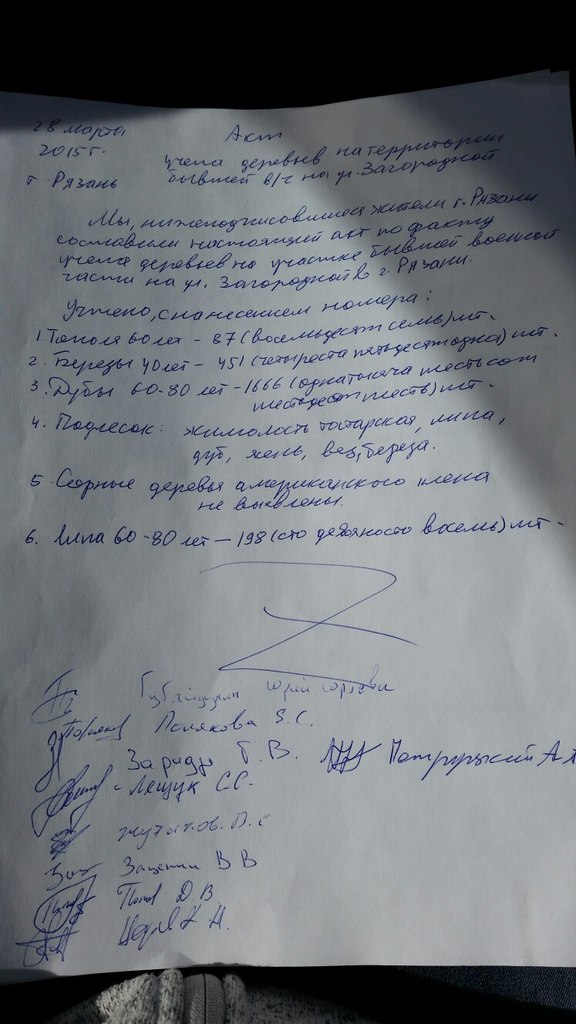 28 марта Акт
2015 г. учета деревьев на территории
г. Рязань бывшей в/ч на ул. Загородной
Мы, нижеподписовшиеся жители г. Рязани
составили настоящий акт по факту
учета деревьев на участке бывшей военной
части на ул. Загородной в г. Рязани.
Учтено, с нанесением номера:
1. Тополя 60 лет - 87 (восемьдесят семь) шт.
2. Березы 40 лет - 451 (четыреста пятьдесят один) шт.
3. Дубы 60-80 лет - 1666 (одна тысяча шестьсот
шестьдесят шесть) шт.
4. Подлесок: жимолость татарская, липа,
дуб, ясень, вяз, береза.
5. Сорные деревья американского клена
не выявлены.
6. Липа 60-80 лет - 198 (сто девяносто восемь) шт.
Юрий
Полякова Е.С.
Г.В.
- Лещук С.С.
В В
Попов Д.В